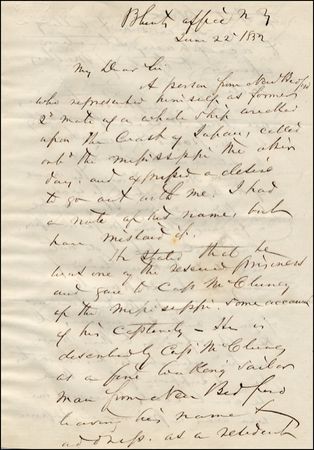 Blunts office N Y
June 22d 1852
My Dear Sir
A person from New Bedford
who represented himself as former
2d mate of a whale ship wrecked
upon the Coast of Japan, called
on the Mississippi the other
day, and expressed a desire
to go out with me. I had
a note of his name, but
have mislaid it.
He stated that he
was one of the rescued prisoners
and gave to Capt McCluney
of the Mississippi some account
of his captivity – He is
described by Capt McCluney
as a fine looking sailor
man from New Bedford
leaving his name &
address. as a resident